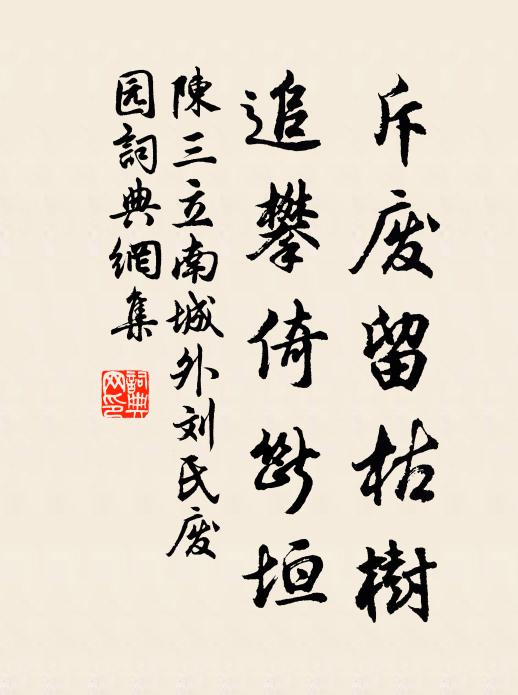 斥废留枯樹
追攀倚斷垣
陳三立南城外刘氏废
园詞典網集
詞典
网印